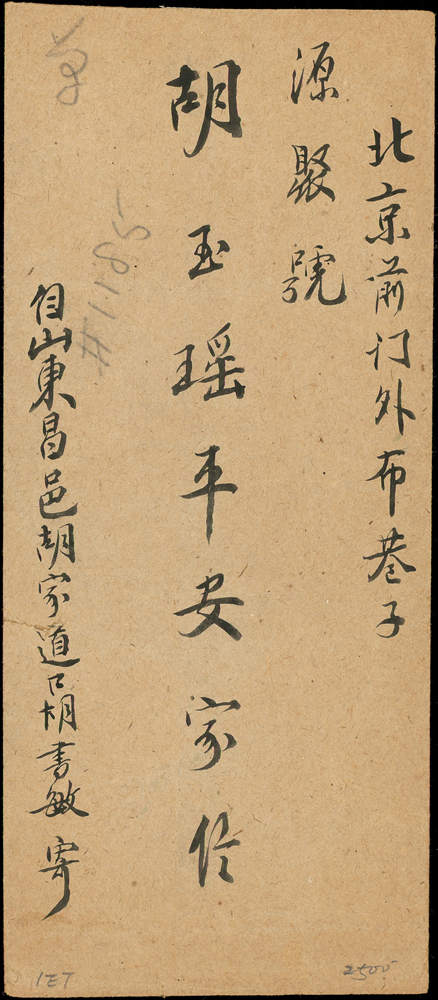 北京前门外布巷子
源聚號
胡玉瑶平安家信
自山東昌邑胡家道口胡書敏寄
#1185
1ET
2500